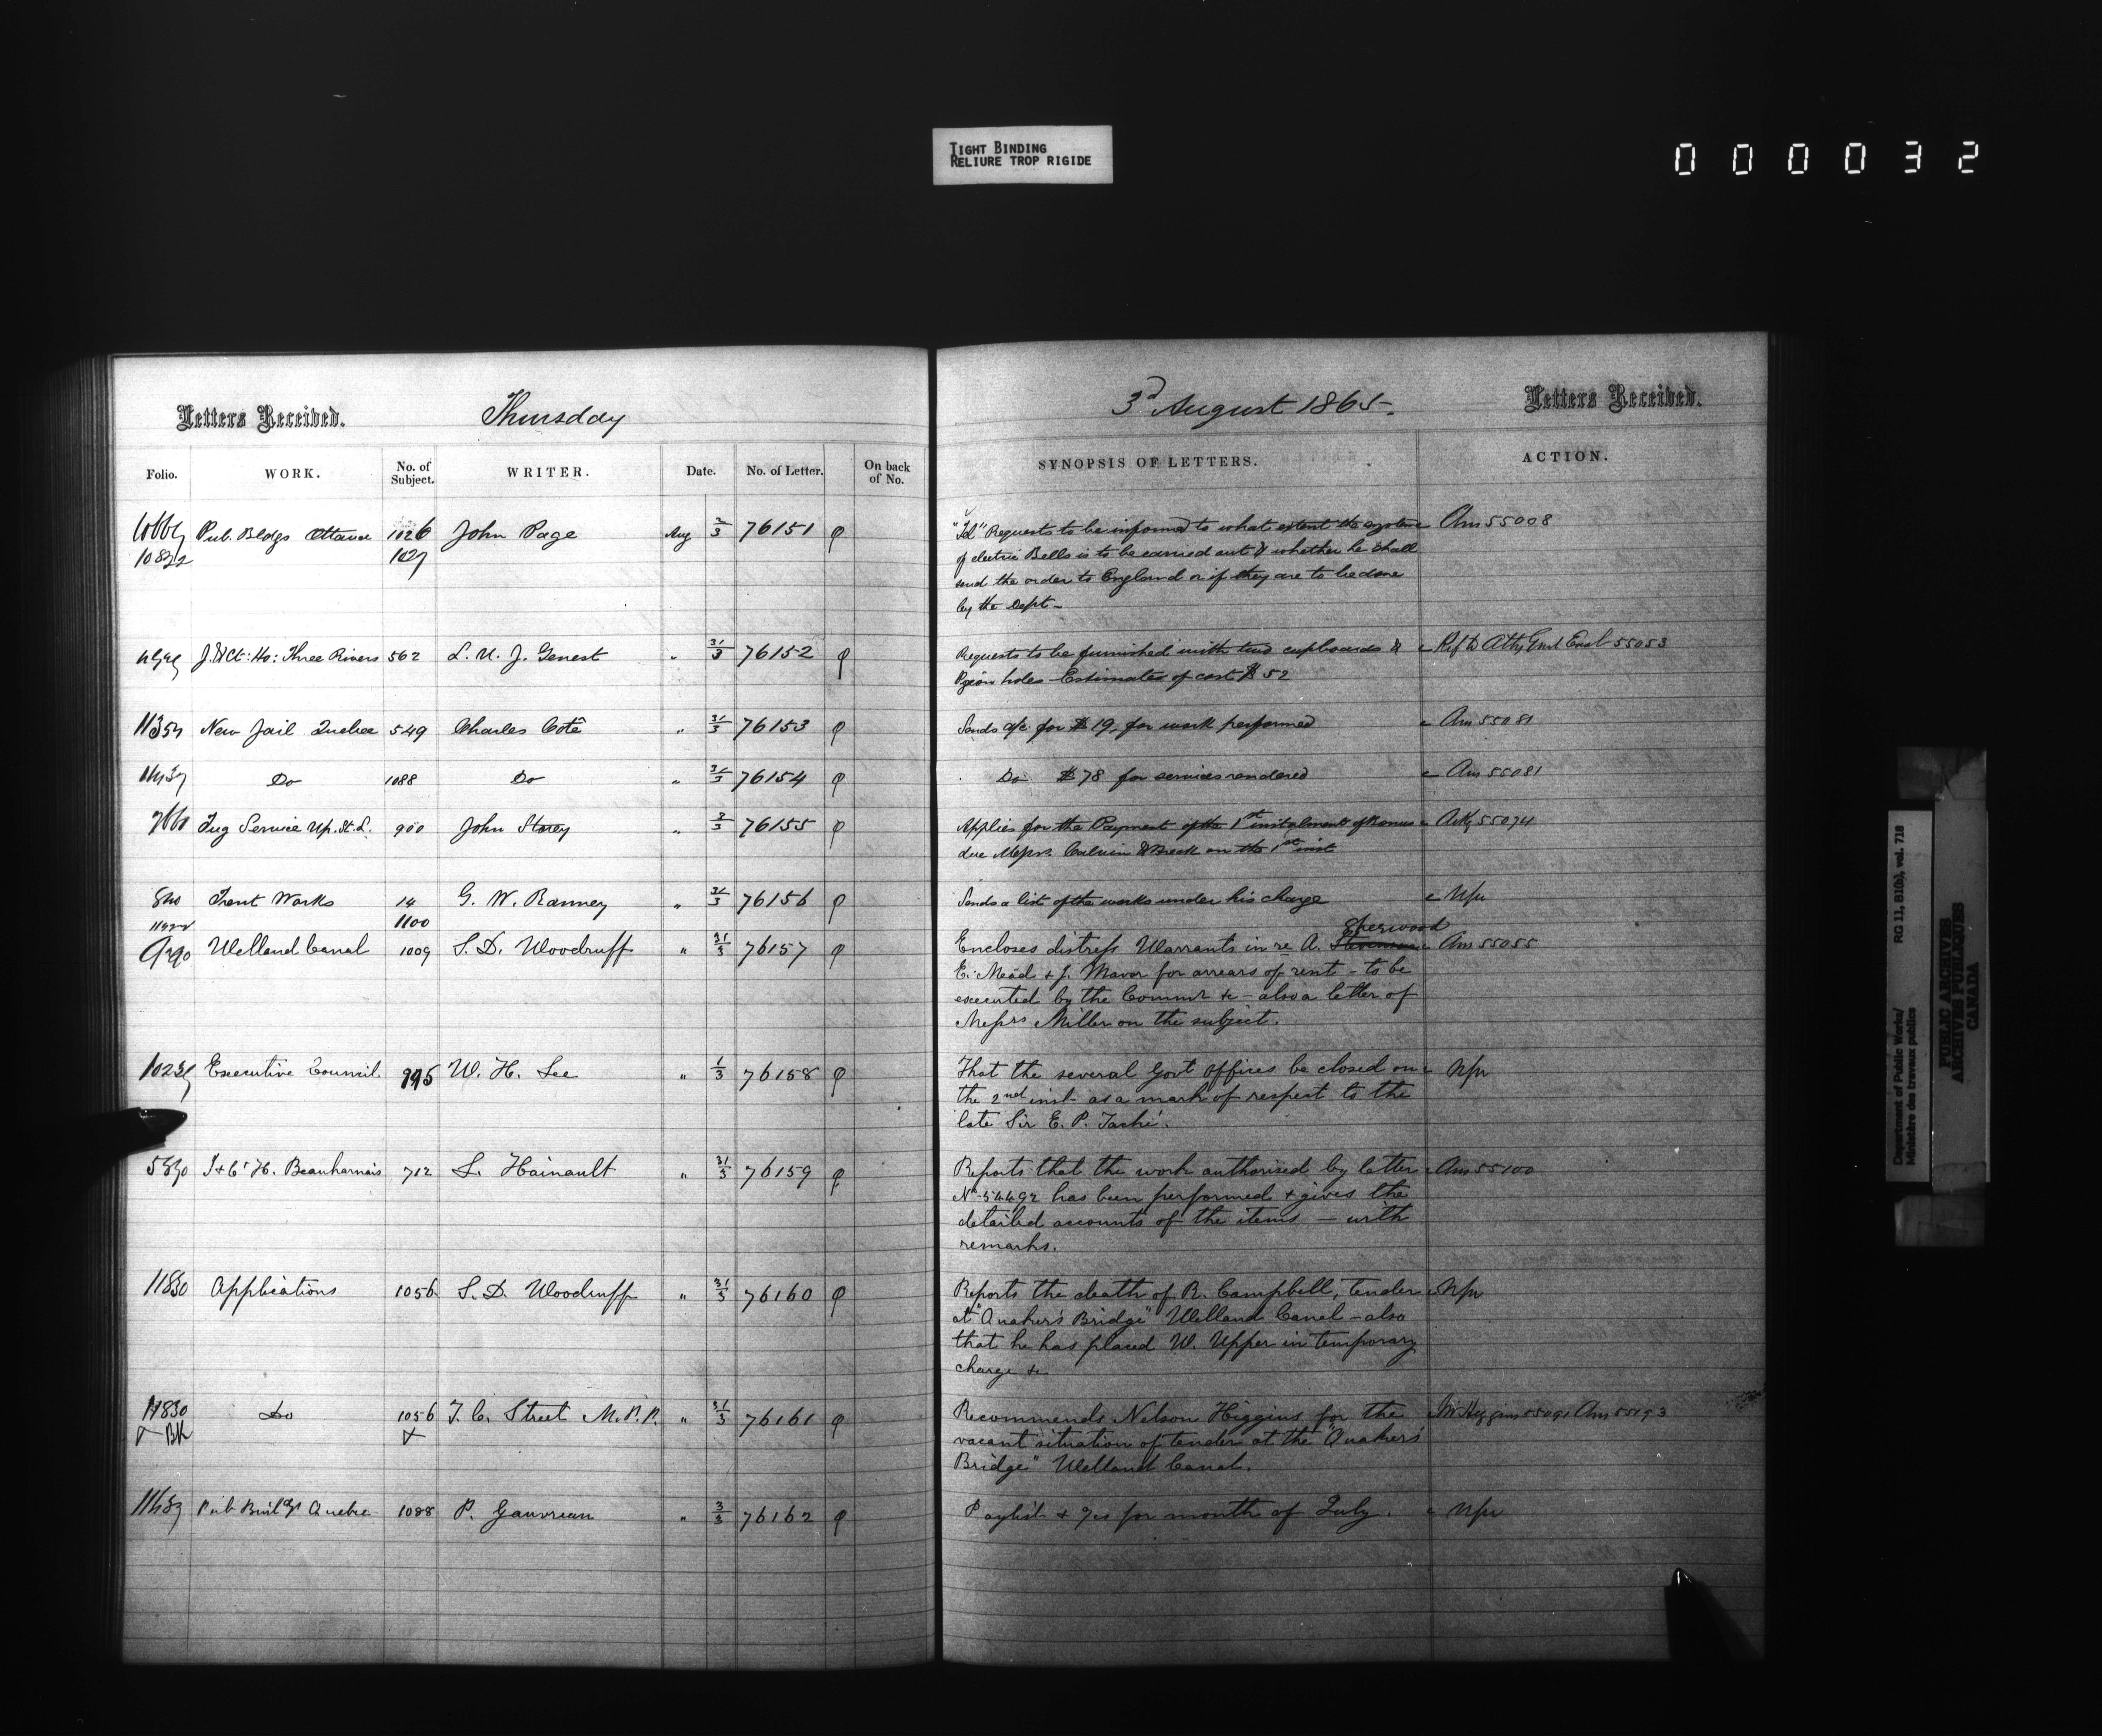 TIGHT BINDING
RELIURE TROP RIGIDE
000032
Letters Received. Thursday
Folio. WORK. No. of Subject. WRITER. Date. No. of Letter. On back of No.
Pub. Bldgs Ottawa 1026 John Page Aug 2/3 76151
1027
J. & Ct: Ho: Three Rivers 562 L. U. J. Genest " 31/3 76152
New Jail Quebec 549 Charles Coté " 31/3 76153
Do 1088 Do " 31/3 76154
Tug Service Up. St. L. 900 John Storey " 2/3 76155
Trent Works 14 G. W. Ranney " 31/3 76156
1100
Welland Canal 1009 S. D. Woodruff " 31/3 76157
Executive Council 995 W. H. Lee " 1/3 76158
J & Ct H. Beauharnois 712 S. Hainault " 31/3 76159
11830 Applications 1056 S. D. Woodruff " 31/3 76160
11830 Do 1056 T. C. Street M.P.P. " 31/3 76161
Pub Buildgs Quebec 1088 P. Gauvreau " 3/3 76162
3d August 1865. Letters Received.
SYNOPSIS OF LETTERS. ACTION.
Requests to be informed to what extent the system Ans 55008
of electric Bells is to be carried out & whether he shall
send the order to England or if they are to be done
by the Dept-
Requests to be furnished with two cupboards & Ref to Atty Genl East 55053
Pigeon holes - Estimates of cost $52
Sends a/c for $19, for work performed Ans 55081
Do $78 for services rendered Ans 55081
Applies for the Payment of the 1st instalment of Bonus 55074
due Messrs. Calvin & Breck on the 1st inst
Sends a list of the works under his charge
Sherwood
Encloses distress Warrants in re A. Stevenson Ans 55055
E. Mead & J. Mavor for arrears of rent - to be
executed by the Commr &c - also a letter of
Messrs Miller on the subject.
That the several Govt offices be closed on
the 2nd inst as a mark of respect to the
late Sir E. P. Taché.
Reports that the work authorised by letter Ans 55100
No 54492 has been performed & gives the
detailed accounts of the items - with
remarks.
Reports the death of R. Campbell, tender
at "Quaker's Bridge" Welland Canal - also
that he has placed W. Upper in temporary
charge &c
Recommends Nelson Higgins for the Higgins 55091 Ans 55193
vacant situation of tender at the "Quaker's
Bridge" Welland Canal.
Paylist & for month of July.
Department of Public Works/
Ministère des travaux publics
RG 11, B1(b), vol. 718
PUBLIC ARCHIVES
ARCHIVES PUBLIQUES
CANADA